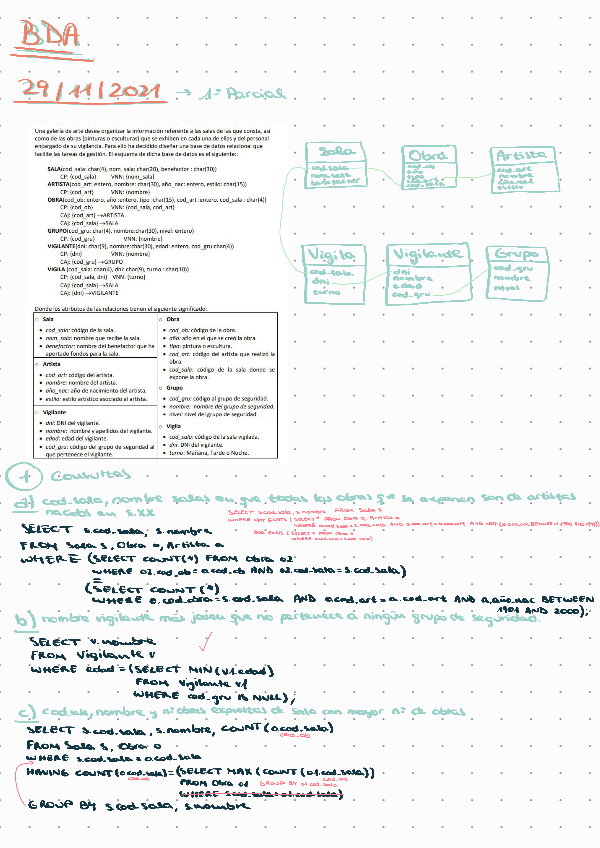 BDA
29/11/2021 → 1º Parcial
Una galería de arte desea organizar la información referente a las salas de las que consta, así
como de las obras (pinturas o esculturas) que se exhiben en cada una de ellas y del personal
encargado de su vigilancia. Para ello ha decidido diseñar una base de datos relacional que
facilite las tareas de gestión. El esquema de dicha base de datos es el siguiente:
SALA(cod_sala: char(4), nom_sala: char(20), benefactor : char(30))
CP: {cod_sala} VNN: {nom_sala}
ARTISTA(cod_art: entero, nombre: char(30), año_nac: entero, estilo: char(15))
CP: {cod_art} VNN: {nombre}
OBRA(cod_ob: entero, año :entero, tipo: char(15), cod_art :entero, cod_sala : char(4))
CP: {cod_ob} VNN: {cod_sala, cod_art}
CAj: {cod_art} →ARTISTA
CAj: {cod_sala} →SALA
GRUPO(cod_gru: char(4), nombre: char(30), nivel: entero)
CP: {cod_gru} VNN: {nombre}
VIGILANTE(dni: char(9), nombre:char(30), edad: entero, cod_gru:char(4))
CP: {dni} VNN: {nombre}
CAj: {cod_gru} →GRUPO
VIGILA (cod_sala: char(4), dni: char(9), turno : char(10))
CP: {cod_sala, dni} VNN: {turno}
CAj: {cod_sala} →SALA
CAj: {dni} →VIGILANTE
Sala
cod_sala
nom_sala
benefactor
Obra
cod_ob
año
tipo
cod_art
cod_sala
Artista
cod_art
nombre
año_nac
estilo
Vigila
cod_sala
dni
turno
Vigilante
dni
nombre
edad
cod_gru
Grupo
cod_gru
nombre
nivel
Donde los atributos de las relaciones tienen el siguiente significado:
○ Sala
• cod_sala: código de la sala.
• nom_sala: nombre que recibe la sala.
• benefactor: nombre del benefactor que ha
aportado fondos para la sala.
○ Artista
• cod_art: código del artista.
• nombre: nombre del artista.
• año_nac: año de nacimiento del artista.
• estilo: estilo artístico asociado al artista.
○ Vigilante
• dni: DNI del vigilante.
• nombre: nombre y apellidos del vigilante.
• edad: edad del vigilante.
• cod_gru: código del grupo de seguridad al
que pertenece el vigilante.
○ Obra
• cod_ob: código de la obra.
• año: año en el que se creó la obra.
• tipo: pintura o escultura.
• cod_art: código del artista que realizó la
obra.
• cod_sala: código de la sala donde se
expone la obra.
○ Grupo
• cod_gru: código al grupo de seguridad.
• nombre: nombre del grupo de seguridad.
• nivel: nivel del grupo de seguridad
○ Vigila
• cod_sala: código de la sala vigilada.
• dni: DNI del vigilante.
• turno: Mañana, Tarde o Noche.
1 Consultas
a) cod_sala, nombre salas en que todas las obras que se exponen son de artistas
nacidos en s.XX
SELECT s.cod_sala, s.nombre FROM Sala s
WHERE NOT EXISTS (SELECT * FROM Obra o, Artista a
SELECT s.cod_sala, s.nombre
FROM Sala s, Obra o, Artista a
WHERE (SELECT COUNT(*) FROM Obra o2
WHERE o2.cod_ob = o.cod_ob AND o2.cod_sala = s.cod_sala)
=
(SELECT COUNT (*)
WHERE o.cod_obra = s.cod_sala AND o.cod_art = a.cod_art AND a.año_nac BETWEEN
1901 AND 2000);
b) nombre vigilante más joven que no pertenece a ningún grupo de seguridad.
SELECT v.nombre
FROM Vigilante v
WHERE edad = (SELECT MIN(v1.edad)
FROM Vigilante v1
WHERE cod_gru IS NULL);
c) cod_sala, nombre y nº obras expuestas de sala con mayor nº de obras
SELECT s.cod_sala, s.nombre, COUNT (o.cod_sala)
cod_ob
FROM Sala s, Obra o
WHERE s.cod_sala = o.cod_sala
HAVING COUNT (o.cod_sala) = (SELECT MAX (COUNT (o1.cod_sala))
cod_ob cod_ob
FROM Obra o1 GROUP BY o1.cod_sala
WHERE s.cod_sala = o1.cod_sala)
GROUP BY s.cod_sala, s.nombre